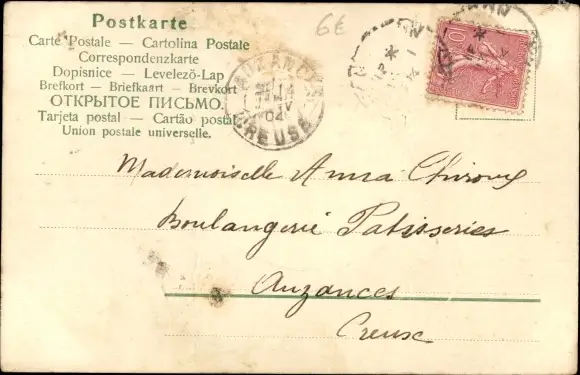 Postkarte
6€
Carte Postale — Cartolina Postale
Correspondenzkarte
Dopisnice — Levelező-Lap
Brefkort — Briefkaart — Brevkort
ОТКРЫТОЕ ПИСЬМО.
Tarjeta postal — Cartão postal
Union postale universelle.
AUZANCES
04
CREUSE
10
Mademoiselle Anna
Boulangerie Patisseries
Auzances
Creuse